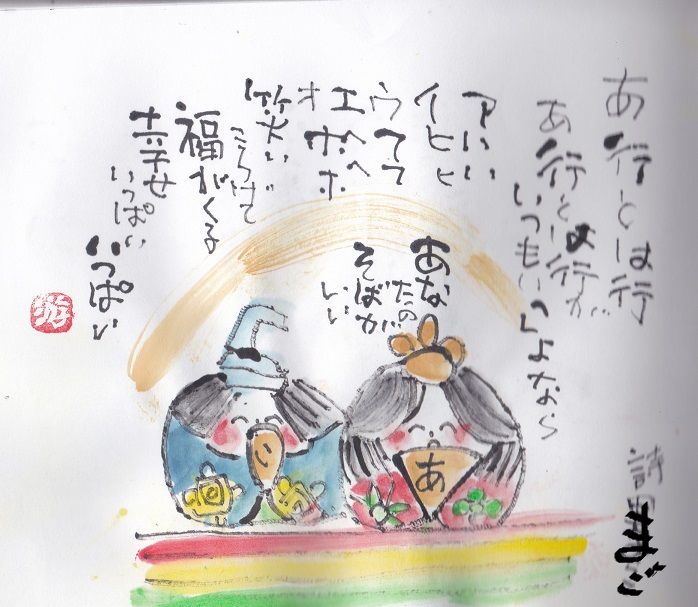 あ行とは行
あ行とは行が
いつもいっしょなら
アハハ
イヒヒ
ウフフ
エヘヘ
オホホ
笑い
ころげて
福がくる
幸せ
いっぱい
いっぱい
あなたの
そばが
いい
い
あ
詩
まご
游